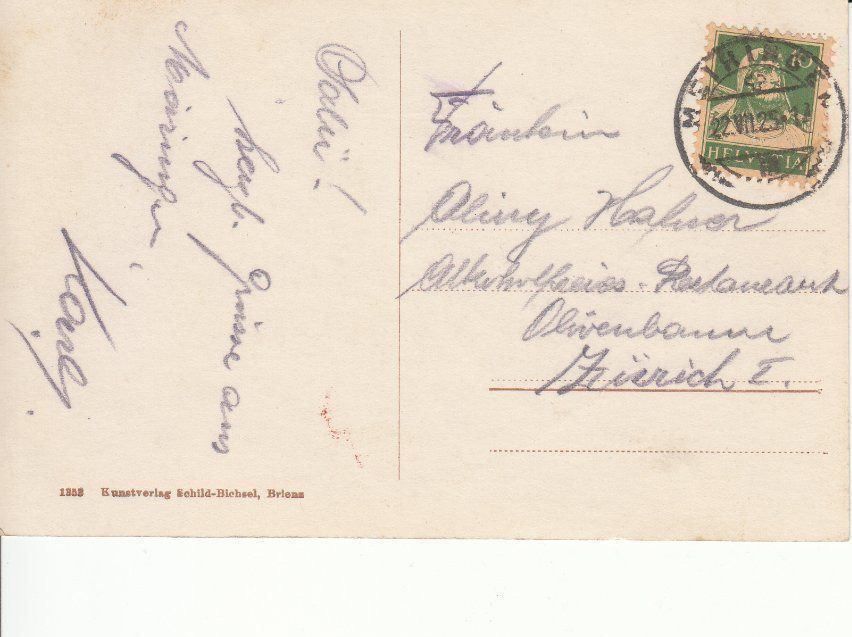 Salü!
Herzl. Grüsse aus
Meiringen
Karl.
Fräulein
Hafner
Alkoholfreies-Restaurant
Olivenbaum
Zürich I.
MEIRINGEN
22.VII.25
10
HELVETIA
1353 Kunstverlag Schild-Bichsel, Brienz